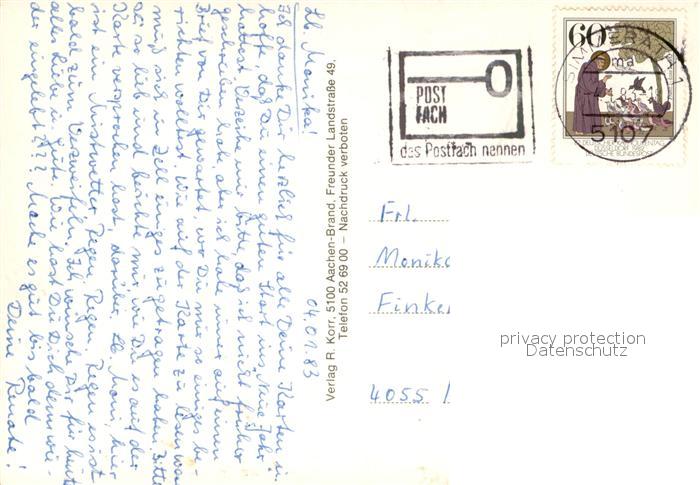 04.01.83
Lb. Monika!
Ich danke Dir herzlich für alle Deine Karten u.
hoffe, daß Du einen guten Start ins "Neue Jahr"
hattest. Verzeihe mir bitte, daß ich nicht früher
geschrieben habe aber ich habe immer auf einen
Brief von Dir gewartet, wo Du mir so einiges be-
richten wolltest. Wie auf der Karte zu lesen war
muß sich in Zell einiges zugetragen haben. Bitte
sei so lieb und berichte mir wie Du es auf der
Karte versprochen hast, darüber. Lb. Moni, hier
ist ein Mistwetter Regen, Regen, Regen es ist
bald zum Verzweifeln. Ich wünsche Dir für heute
alles Liebe u. Gute. Wie hast Du Dich denn wie-
der eingelebt??? Mache es gut bis bald
Deine Renate!
Verlag R. Korr, 5100 Aachen-Brand, Freunder Landstraße 49,
Telefon 52 69 00 – Nachdruck verboten
POST
FACH
das Postfach nennen
60
5107
Frl.
Monika
Finke
4055
privacy protection
Datenschutz